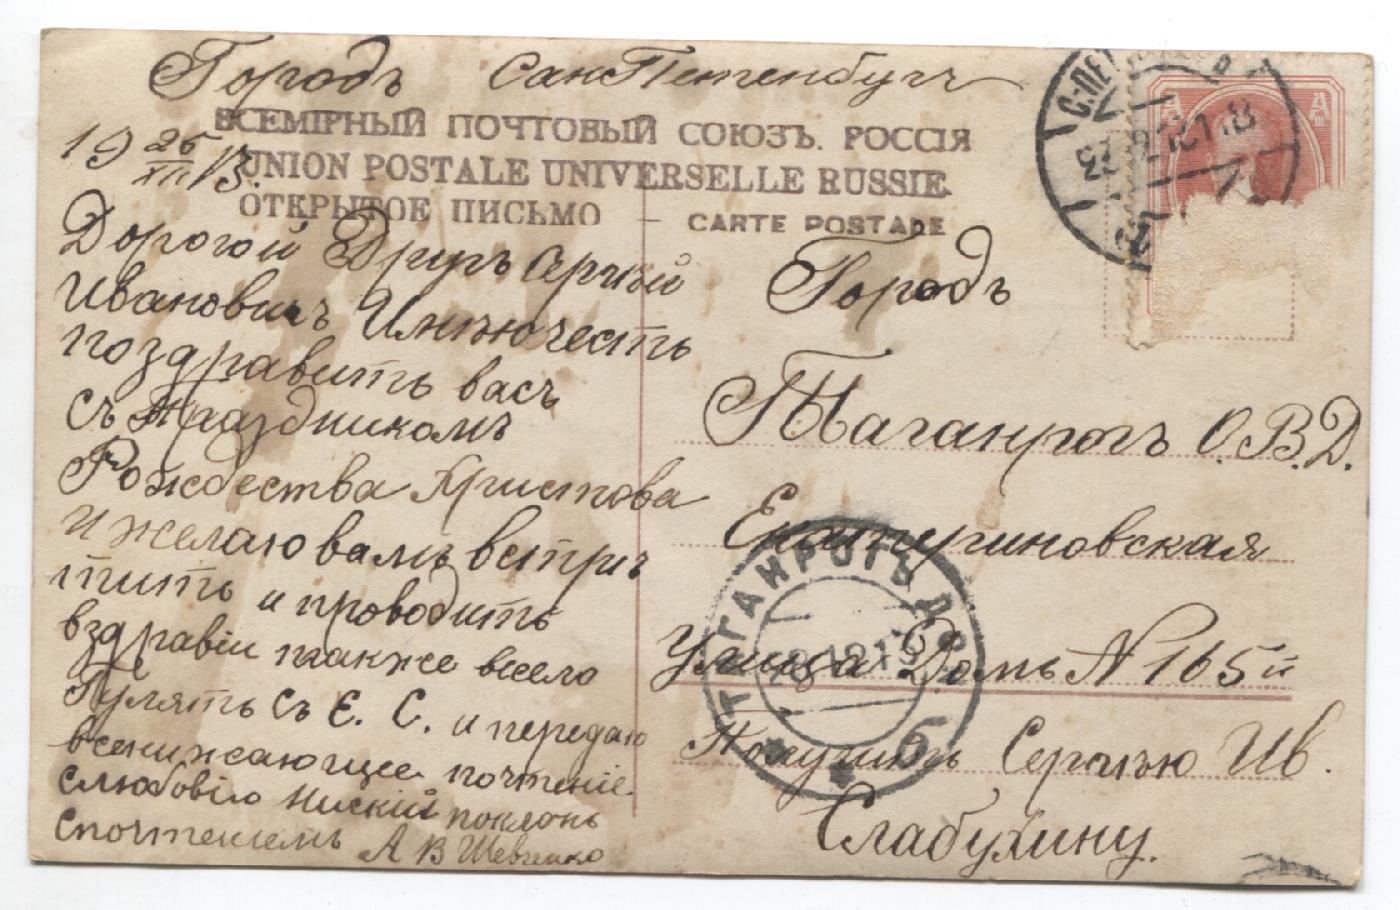 Городъ СанПетенбугъ
ВСЕМІРНЫЙ ПОЧТОВЫЙ СОЮЗЪ. РОССІЯ
UNION POSTALE UNIVERSELLE RUSSIE.
ОТКРЫТОЕ ПИСЬМО — CARTE POSTALE
19 25/XII 13.
Дорогой Другъ Сергѣй
Ивановичъ Имѣю честь
поздравить васъ
съ Праздникомъ
Рождества Христова
и желаю вамъ встрѣ
тить и проводить
вздравіи также весело
Гулять съ Е. С. и передаю
всенижающее почтеніе
слюбовію Ниский поклонъ
спочтениемъ А В Шевченко
Городъ
Таганрогъ О.В.Д.
Екатериновская
Улица Домъ N 165й
Получить Сергѣю Ив.
Слабухину.
С-ПЕТ
ТАГАНРОГЪ Д.О.
12 13
б